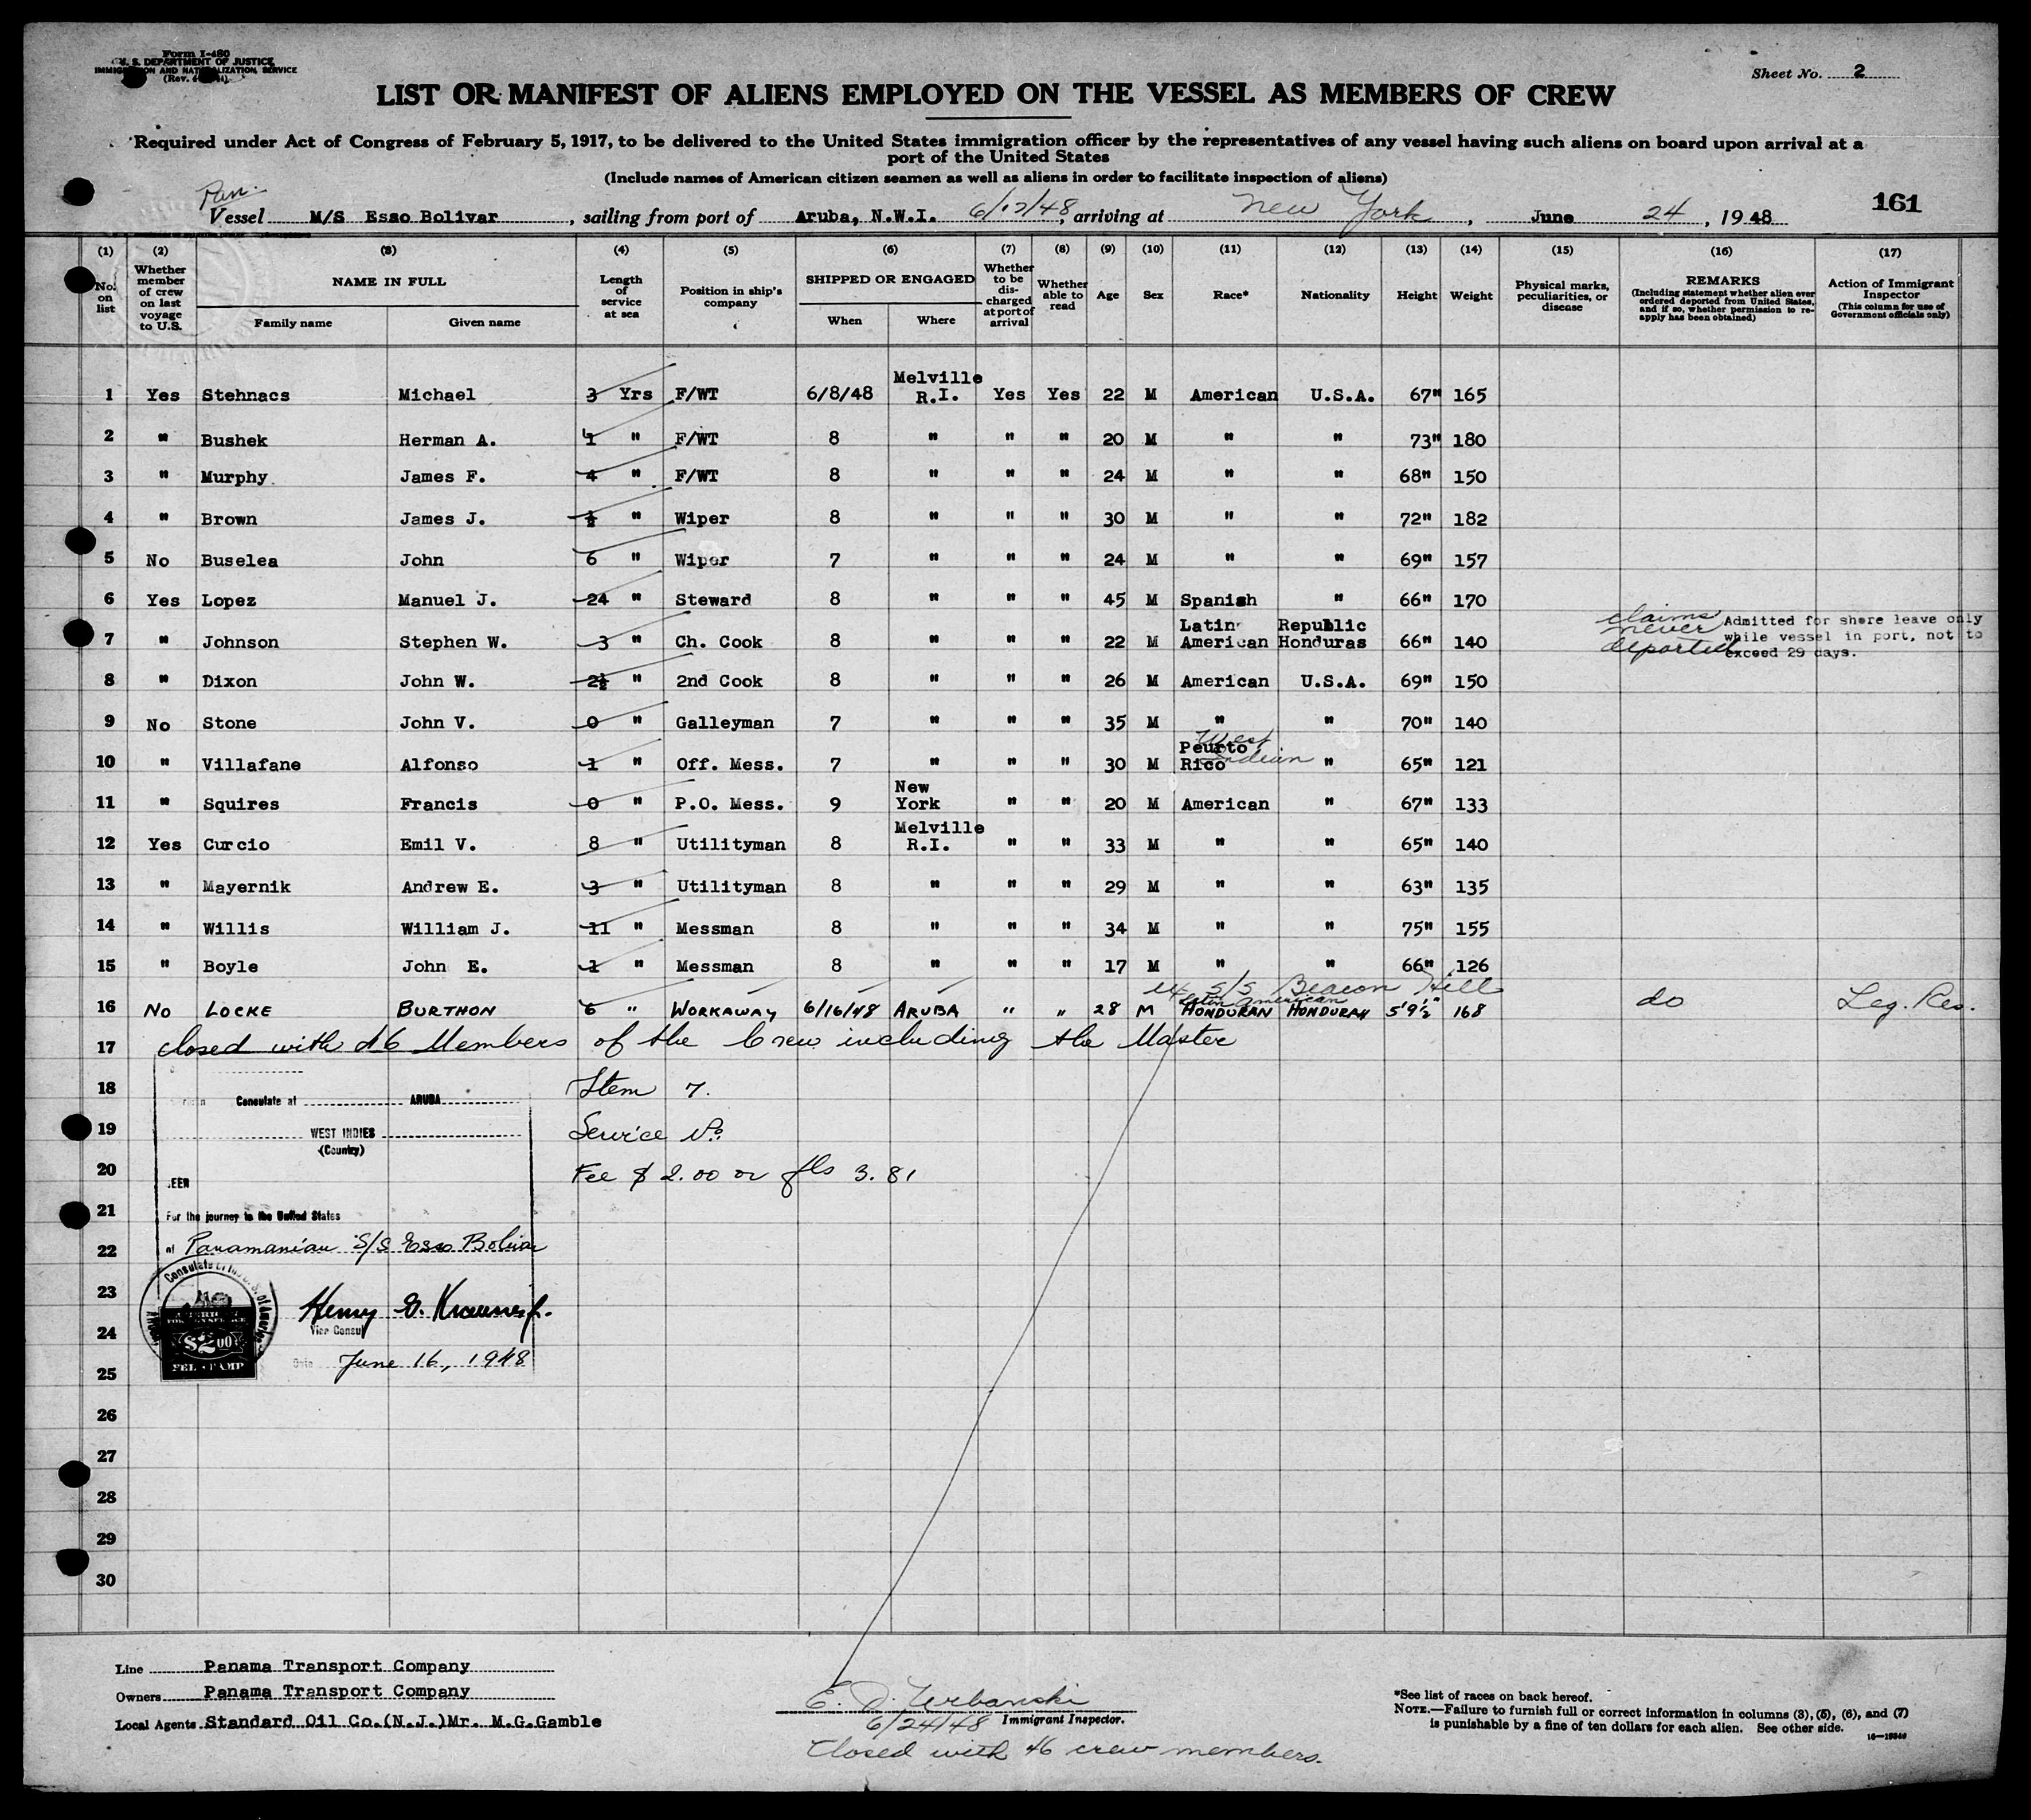 Form I-480
U. S. DEPARTMENT OF JUSTICE
IMMIGRATION AND NATURALIZATION SERVICE
Sheet No. 2
LIST OR MANIFEST OF ALIENS EMPLOYED ON THE VESSEL AS MEMBERS OF CREW
Required under Act of Congress of February 5, 1917, to be delivered to the United States immigration officer by the representatives of any vessel having such aliens on board upon arrival at a
port of the United States
(Include names of American citizen seamen as well as aliens in order to facilitate inspection of aliens)
Pan.
161
Vessel M/S Esso Bolivar, sailing from port of Aruba, N.W.I. 6/17/48, arriving at New York, June 24, 1948
(1) (2) (3) (4) (5) (6) (7) (8) (9) (10) (11) (12) (13) (14) (15) (16) (17)
No. on list
Whether member of crew on last voyage to U.S.
NAME IN FULL
Family name Given name
Length of service at sea
Position in ship's company
SHIPPED OR ENGAGED
When Where
Whether to be discharged at port of arrival
Whether able to read
Age
Sex
Race*
Nationality
Height
Weight
Physical marks, peculiarities, or disease
REMARKS
(Including statement whether alien ever ordered deported from United States, and if so, whether permission to re-apply has been obtained)
Action of Immigrant Inspector
(This column for use of Government officials only)
1 Yes Stehnacs Michael 3 Yrs F/WT 6/8/48 Melville R.I. Yes Yes 22 M American U.S.A. 67" 165
2 " Bushek Herman A. 1 " F/WT 8 " " " 20 M " " 73" 180
3 " Murphy James F. 4 " F/WT 8 " " " 24 M " " 68" 150
4 " Brown James J. ½ " Wiper 8 " " " 30 M " " 72" 182
5 No Buselea John 6 " Wiper 7 " " " 24 M " " 69" 157
6 Yes Lopez Manuel J. 24 " Steward 8 " " " 45 M Spanish " 66" 170
7 " Johnson Stephen W. 3 " Ch. Cook 8 " " " 22 M Latin American Republic Honduras 66" 140 claims never deported Admitted for shore leave only while vessel in port, not to exceed 29 days.
8 " Dixon John W. 2½ " 2nd Cook 8 " " " 26 M American U.S.A. 69" 150
9 No Stone John V. 0 " Galleyman 7 " " " 35 M " " 70" 140
10 " Villafane Alfonso 1 " Off. Mess. 7 " " " 30 M Peurto Rico West Indian " 65" 121
11 " Squires Francis 0 " P.O. Mess. 9 New York " " 20 M American " 67" 133
12 Yes Curcio Emil V. 8 " Utilityman 8 Melville R.I. " " 33 M " " 65" 140
13 " Mayernik Andrew E. 3 " Utilityman 8 " " " 29 M " " 63" 135
14 " Willis William J. 11 " Messman 8 " " " 34 M " " 75" 155
15 " Boyle John E. 1 " Messman 8 " " " 17 M " " 66" 126
S/S Beacon Hill
16 No LOCKE BURTHON 6 " WORKAWAY 6/16/48 ARUBA " " 28 M Latin American HONDURAN HONDURAN 5'9½" 168 do Leg. Res.
17 closed with 46 Members of the Crew including the Master
18 Item 7.
Consulate at ARUBA
19 Service No.
WEST INDIES
(Country)
20 Fee $ 2.00 or fls 3.81
21
For the journey to the United States
22 of Panamanian S/S Esso Bolivar
23 Henry G. Krausse Jr.
Vice Consul
24 $2.00
25 June 16, 1948
26
27
28
29
30
Line Panama Transport Company
Owners Panama Transport Company
Local Agents Standard Oil Co.(N.J.)Mr. M.G.Gamble
E. J. Urbanski
6/24/48 Immigrant Inspector.
Closed with 46 crew members.
*See list of races on back hereof.
NOTE.—Failure to furnish full or correct information in columns (3), (5), (6), and (7)
is punishable by a fine of ten dollars for each alien. See other side.